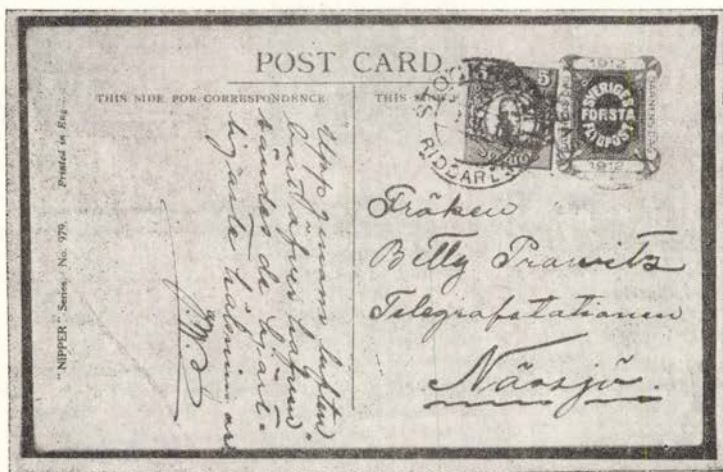 POST CARD
THIS SIDE FOR CORRESPONDENCE
THIS
"NIPPER" Series. No. 979. Printed in Eng
Upp genom luften
bort öfver hafven
sändes de hjärt-
ligaste hälsningar
5 5
RIDDAR
1912
SVERIGES
FÖRSTA
FLYGPOST
1912
Fröken
Betty Prawitz
Telegrafstationen
Nässjö.